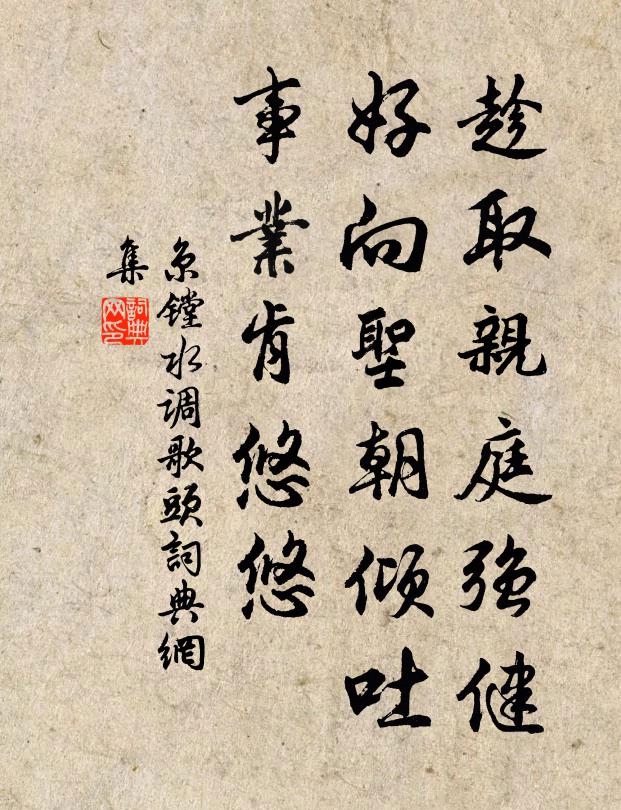 趁取親庭強健
好向聖朝傾吐
事業肯悠悠
京鏜水调歌頭詞典網
集
詞典
网印